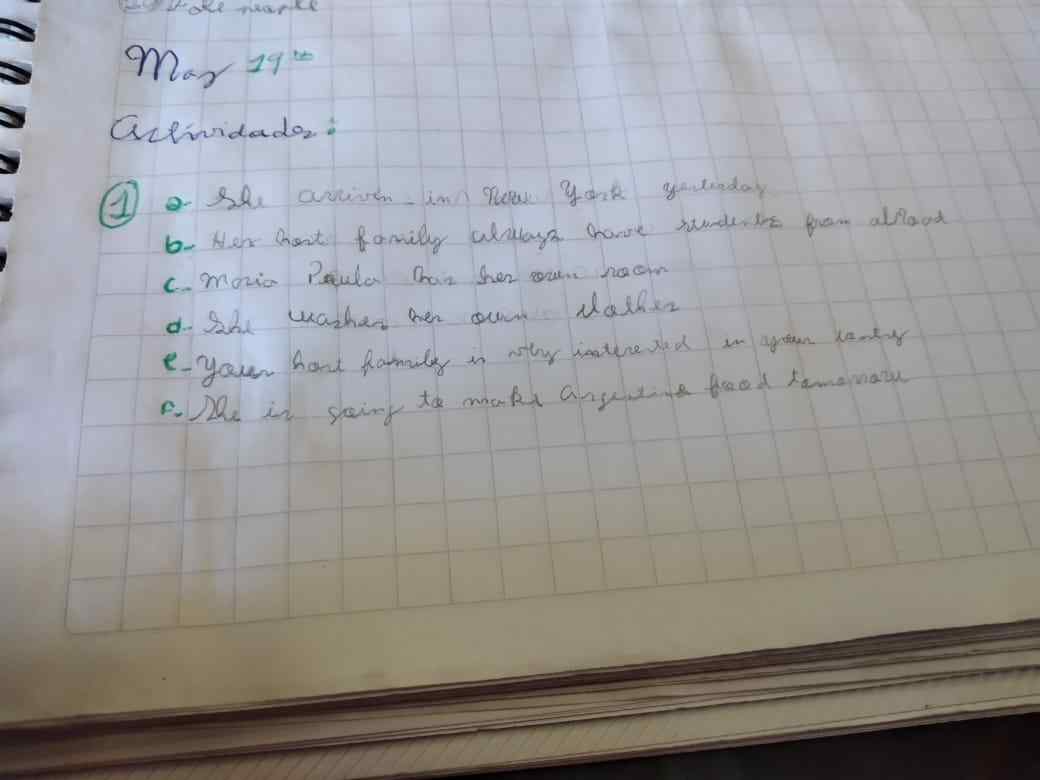 May 19th
Actividades:
1 a- She arriven in New York yesterday
b- Her host family always have students from abroad
c- Maria Paula has her own room
d- She washes her own clothes
e- Your host family is very interested in your
f- She is going to make Argentine food tomorrow